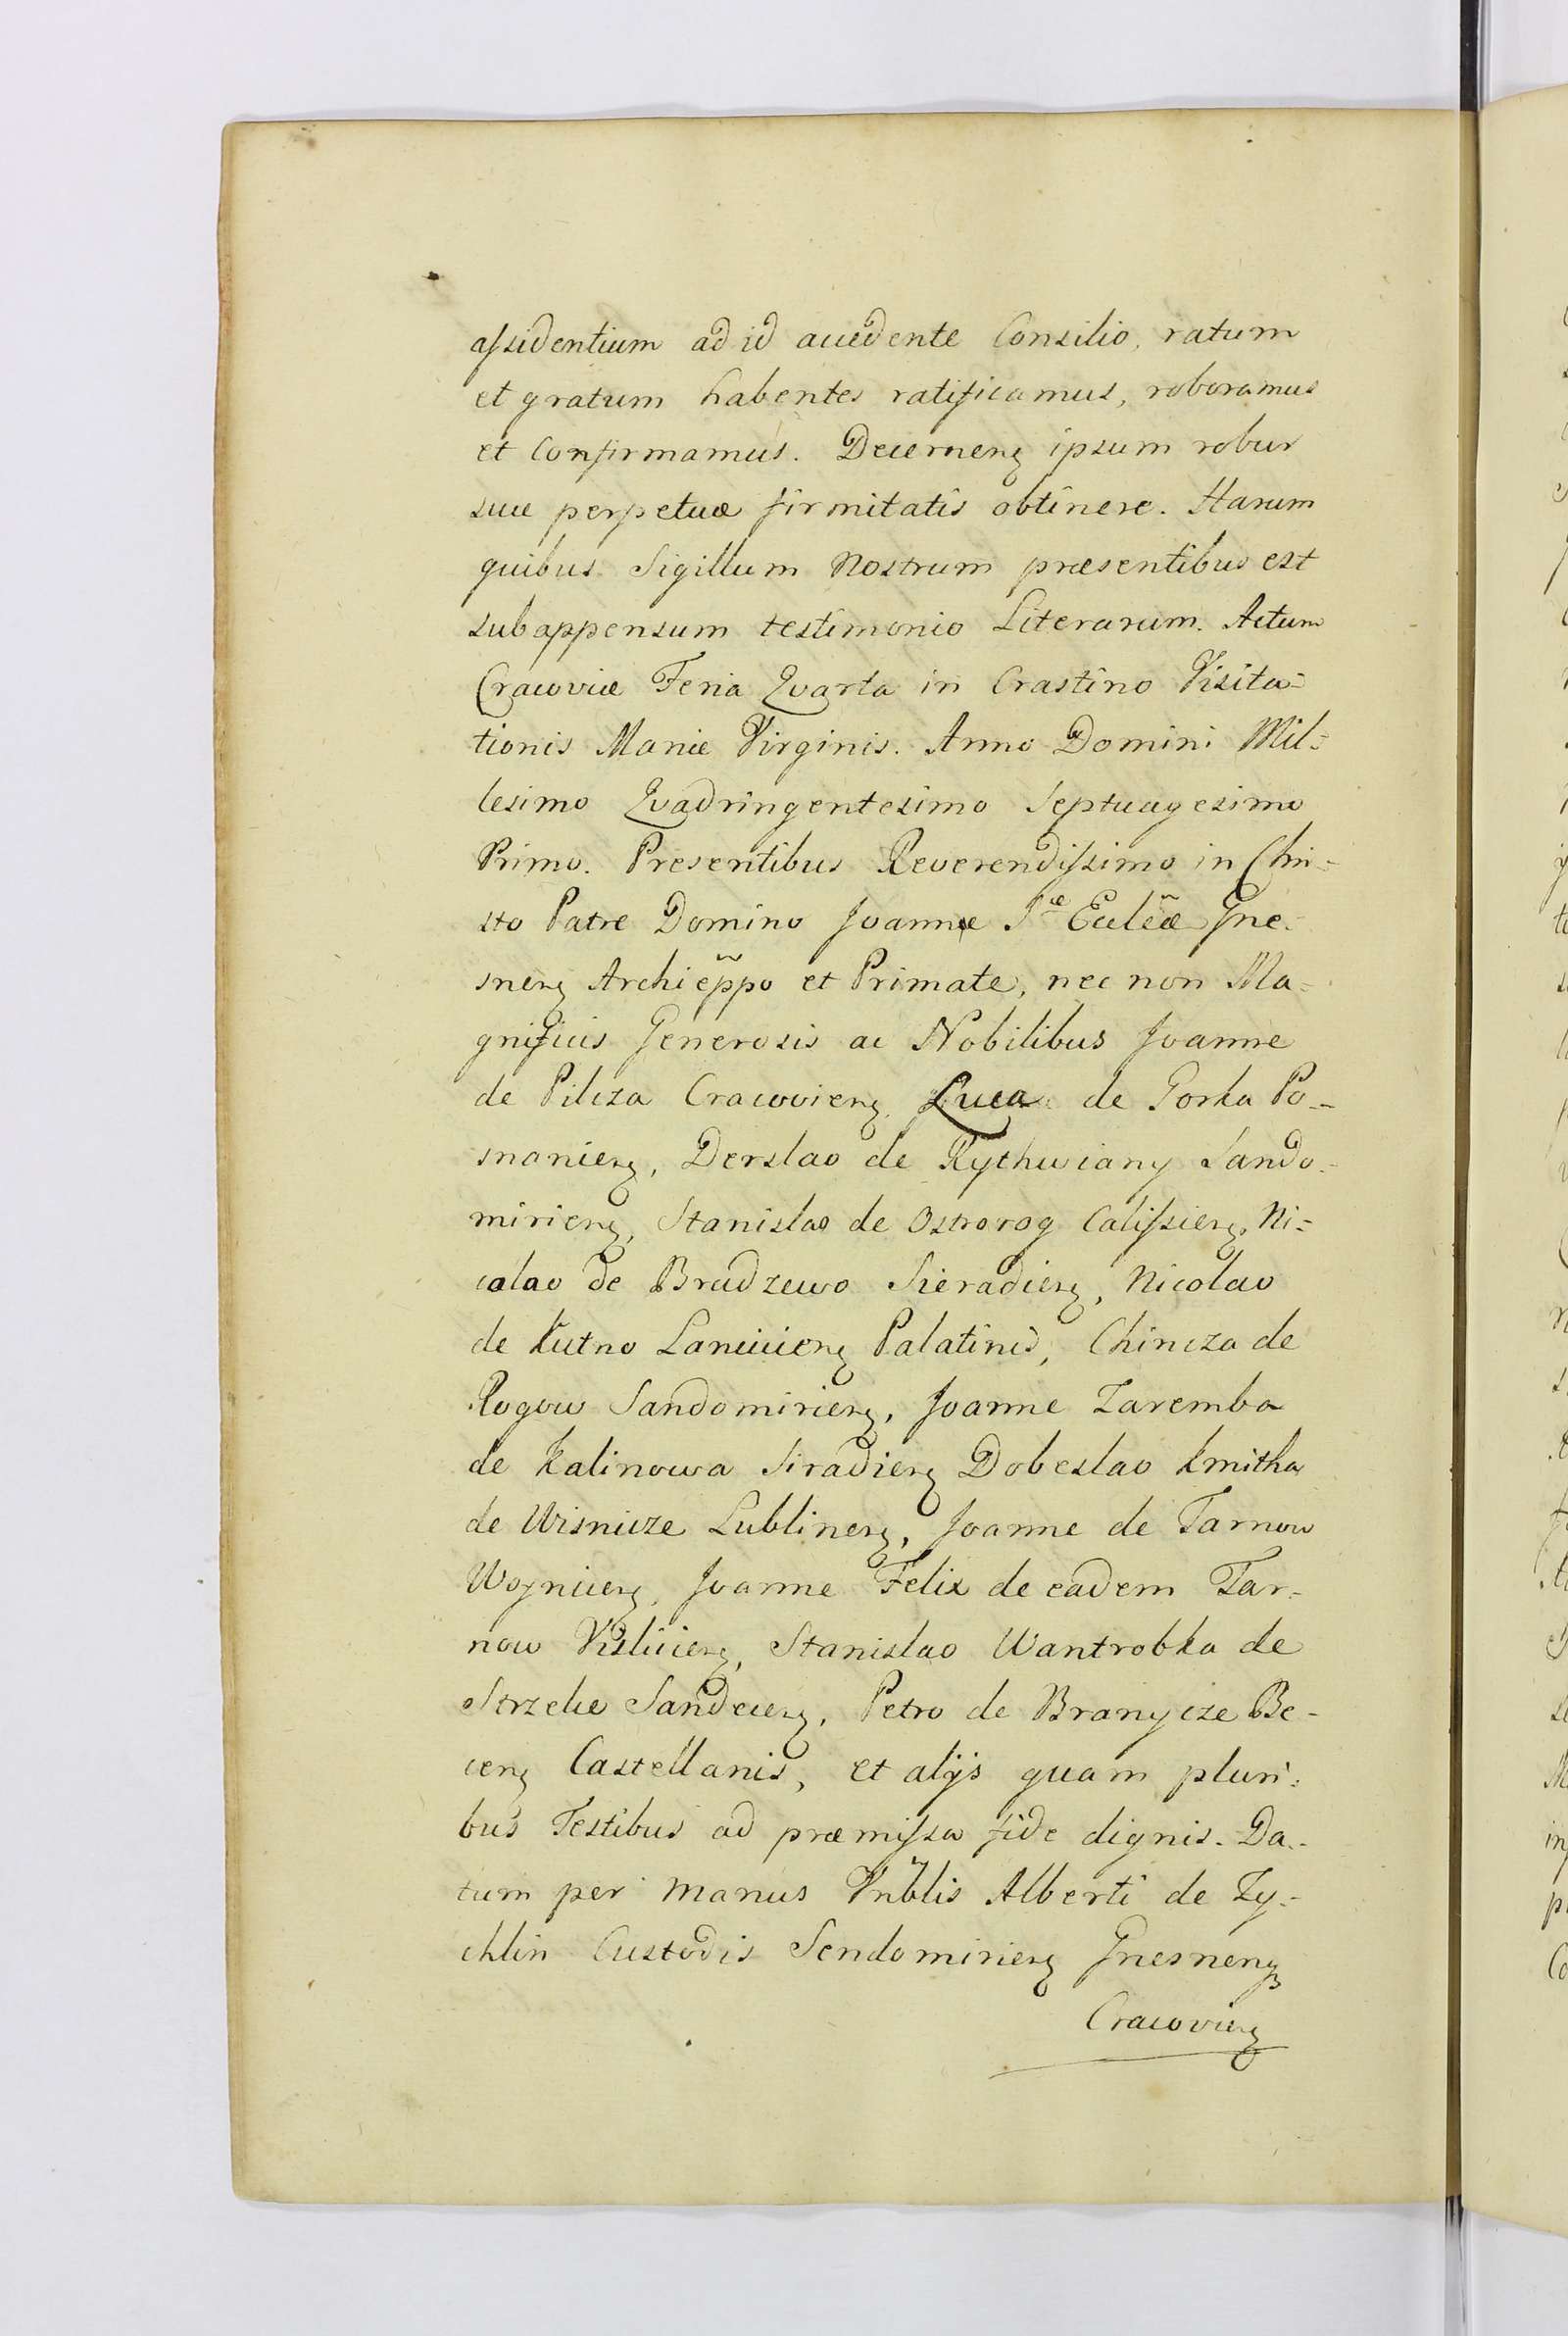 assidentium ad id accedente Consilio, ratum
et gratum habentes ratificamus, roboramus
et Confirmamus. Decernenꝫ ipsum robur
suæ perpetuæ firmitatis obtinere. Harum
quibus Sigillum Nostrum præsentibus est
subappensum testimonio Literarum. Actum
Cracoviæ Feria Qvarta in Crastino Visita=
tionis Mariæ Virginis. Anno Domini Mil=
lesimo Qvadringentesimo Septuagesimo
Primo. Presentibus Reverendissimo in Chri=
sto Patre Domino Joanne Sæ Eccleæ Gne=
snenꝫ Archieppo et Primate, nec non Ma=
gnificis Generosis ac Nobilibus Joanne
de Pilcza Cracovienꝫ, Luca de Gorka Po=
snanienꝫ, Derslao de Rythwiany Sando=
mirienꝫ, Stanislao de Ostrorog Calissienꝫ, Ni=
colao de Brudzewo Sieradienꝫ, Nicolao
de Kutno Lancicienꝫ Palatinis, Chincza de
Rogow Sandomirienꝫ, Joanne Zaremba
de Kalinowa Siradienꝫ Dobeslao Kmitha
de Wisnicze Lublinenꝫ, Joanne de Tarnow
Woynicienꝫ, Joanne Felix de eadem Tar=
now Vislicienꝫ, Stanislao Wantrobka de
Strzelce Sandecenꝫ, Petro de Branycze Be=
cenꝫ Castellanis, et alijs quam pluri=
bus Testibus ad præmissa fide dignis. Da=
tum per manus Vnblis Alberti de Zy=
chlin Custodis Sendomirienꝫ Gnesnenꝫ
Cracovienꝫ